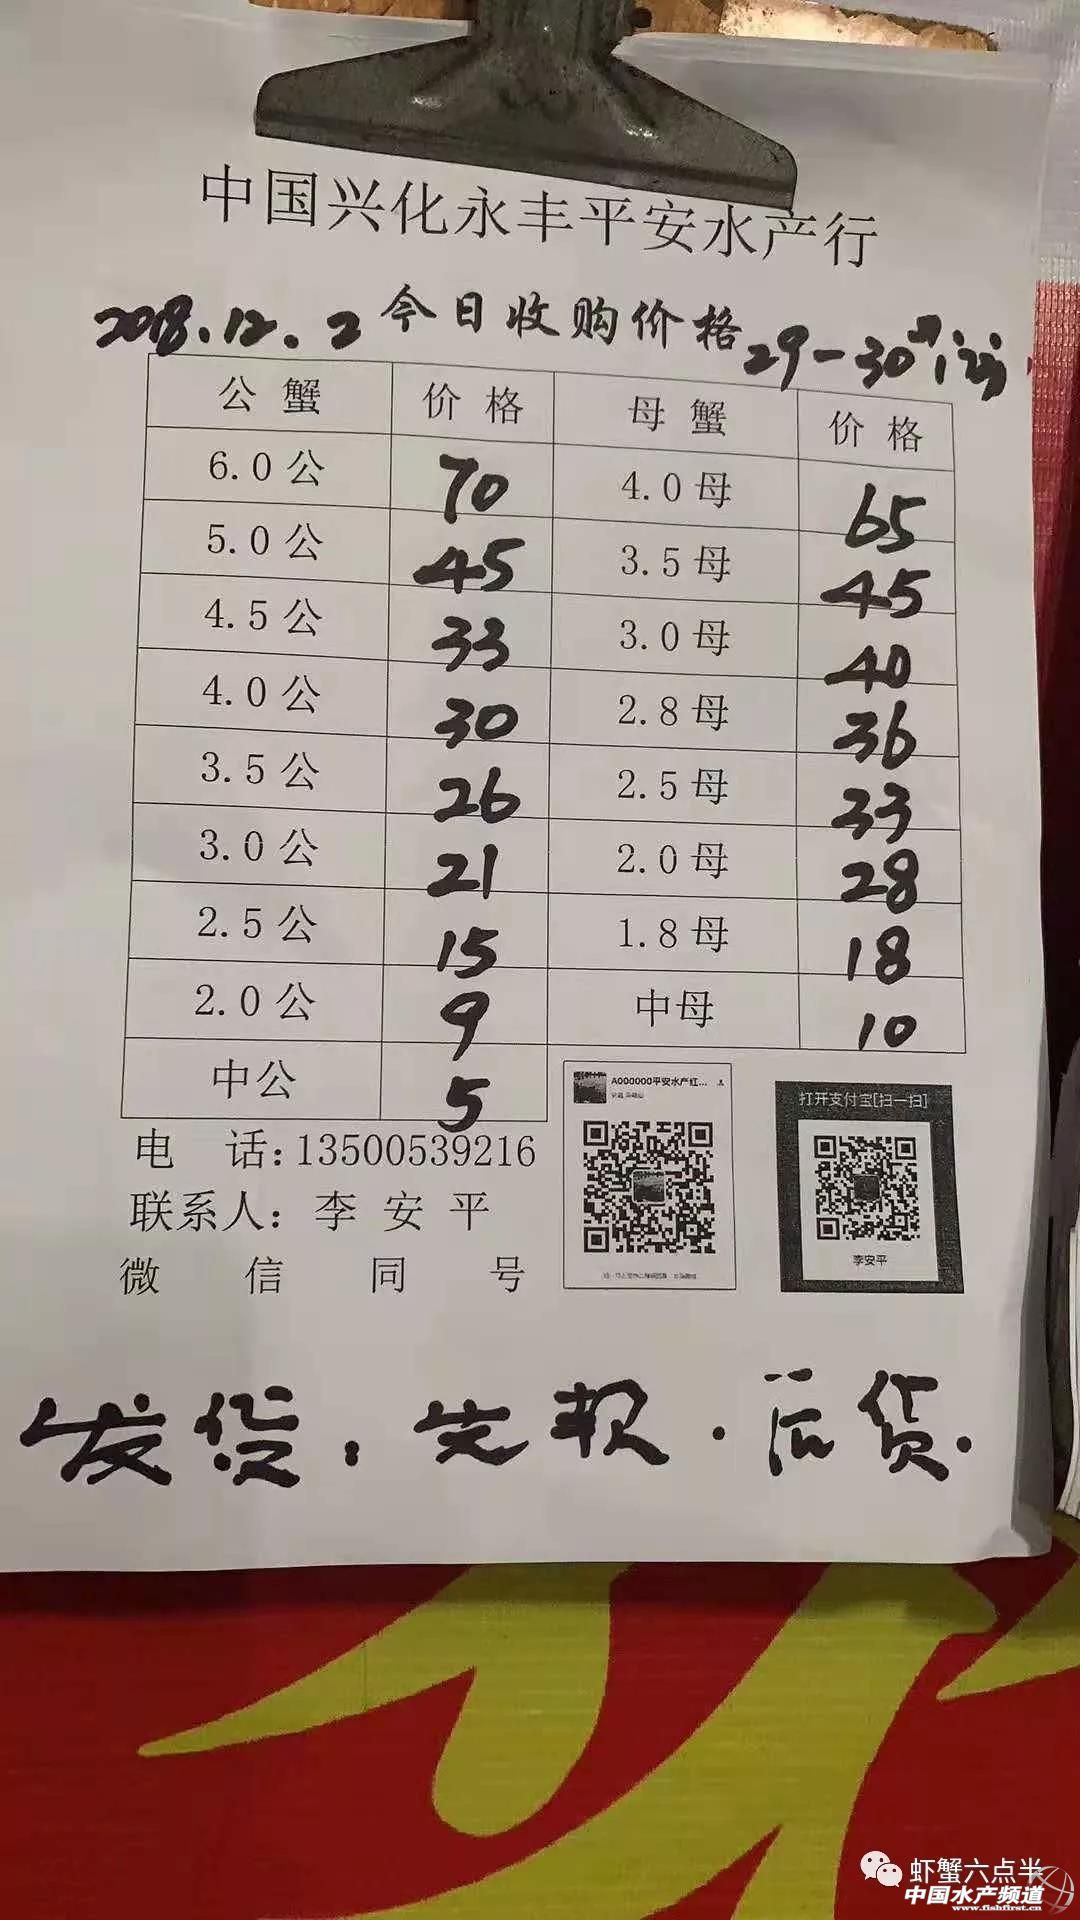 中国兴化永丰平安水产行
2018.12.2 今日收购价格 29-30
公蟹 价格 母蟹 价格
6.0公 70 4.0母 65
5.0公 45 3.5母 45
4.5公 33 3.0母 40
4.0公 30 2.8母 36
3.5公 26 2.5母 33
3.0公 21 2.0母 28
2.5公 15 1.8母 18
2.0公 9 中母 10
中公 5
A000000平安水产红...
打开支付宝[扫一扫]
李安平
电 话:13500539216
联系人: 李安平
微信同号
发货: 先款.后货.
虾蟹六点半
中国水产频道
www.fishfirst.cn